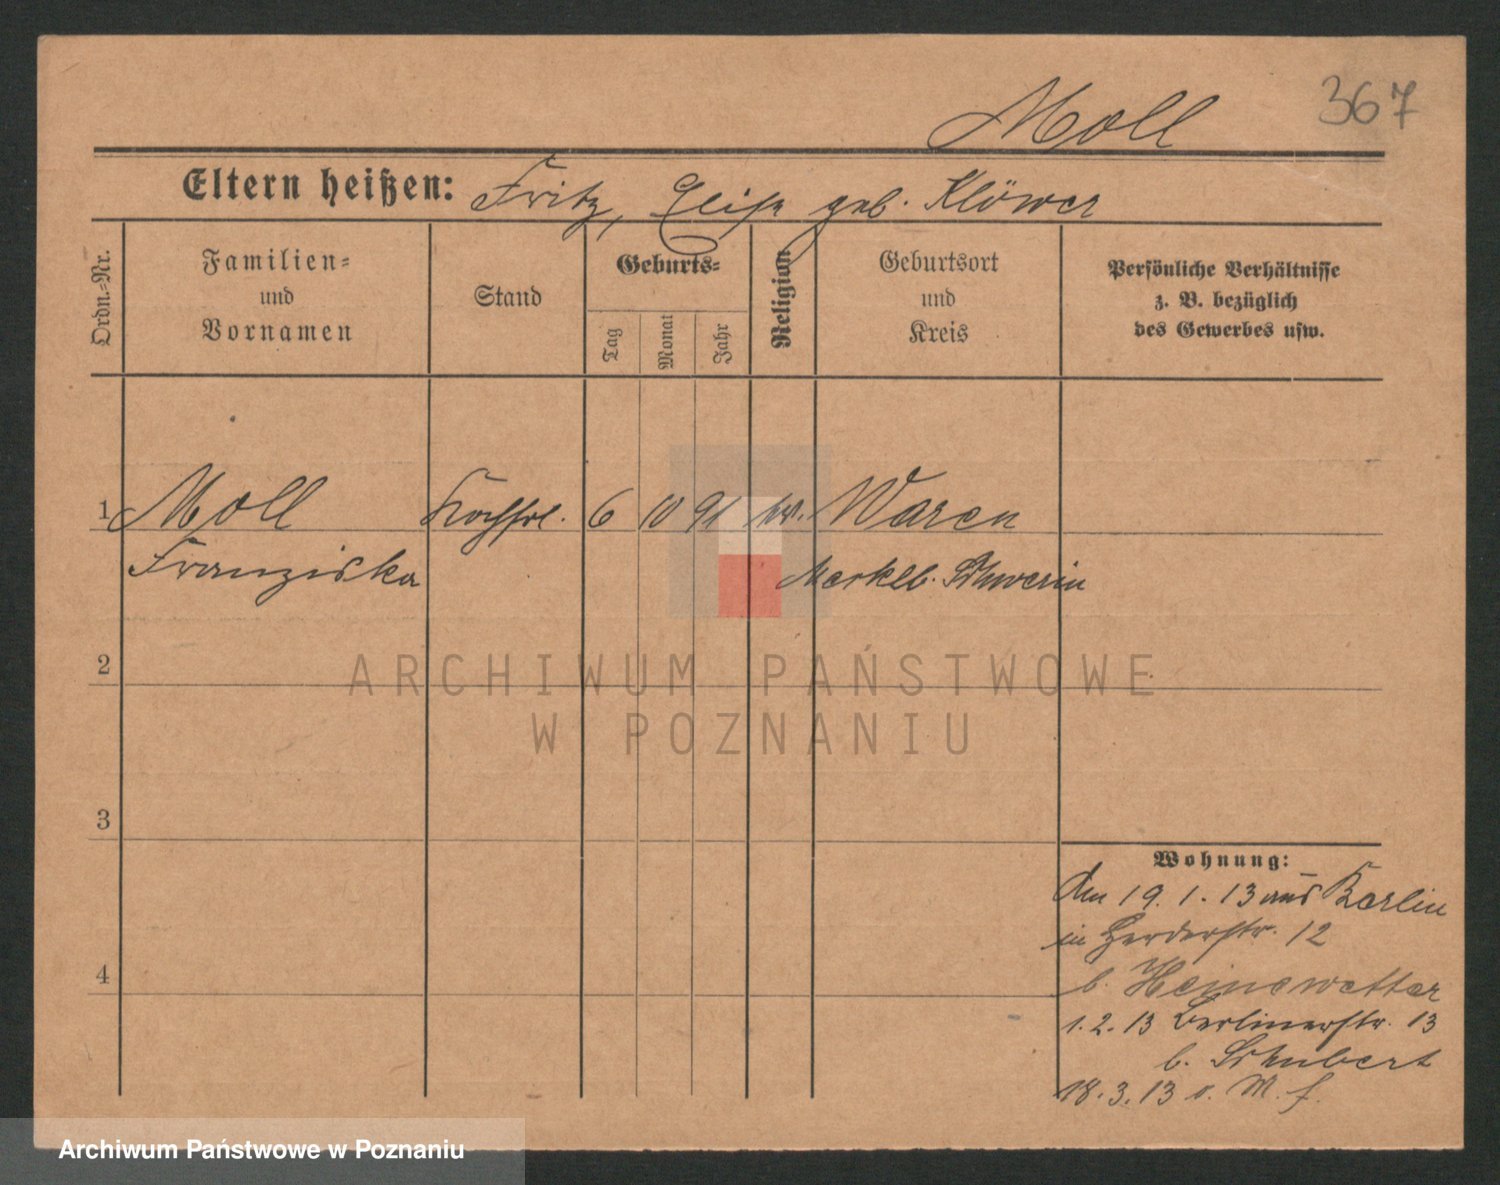 367
Moll
Eltern heißen: Fritz, Elise geb. Klöwer
Ordn.-Nr.
Familien- und Vornamen
Stand
Geburts-
Tag
Monat
Jahr
Religion
Geburtsort und Kreis
Persönliche Verhältnisse
z. B. bezüglich
des Gewerbes usw.
1 Moll Kochfrl. 6 10 91 Waren
Franziska Mecklb. Schwerin
2
3
4
Wohnung:
Am 19. 1. 13 aus Berlin
in Herderstr. 12
b. Heinewetter
1. 2. 13 Berlinerstr. 13
b. Schubert
18. 3. 13
ARCHIWUM PAŃSTWOWE
W POZNANIU
Archiwum Państwowe w Poznaniu